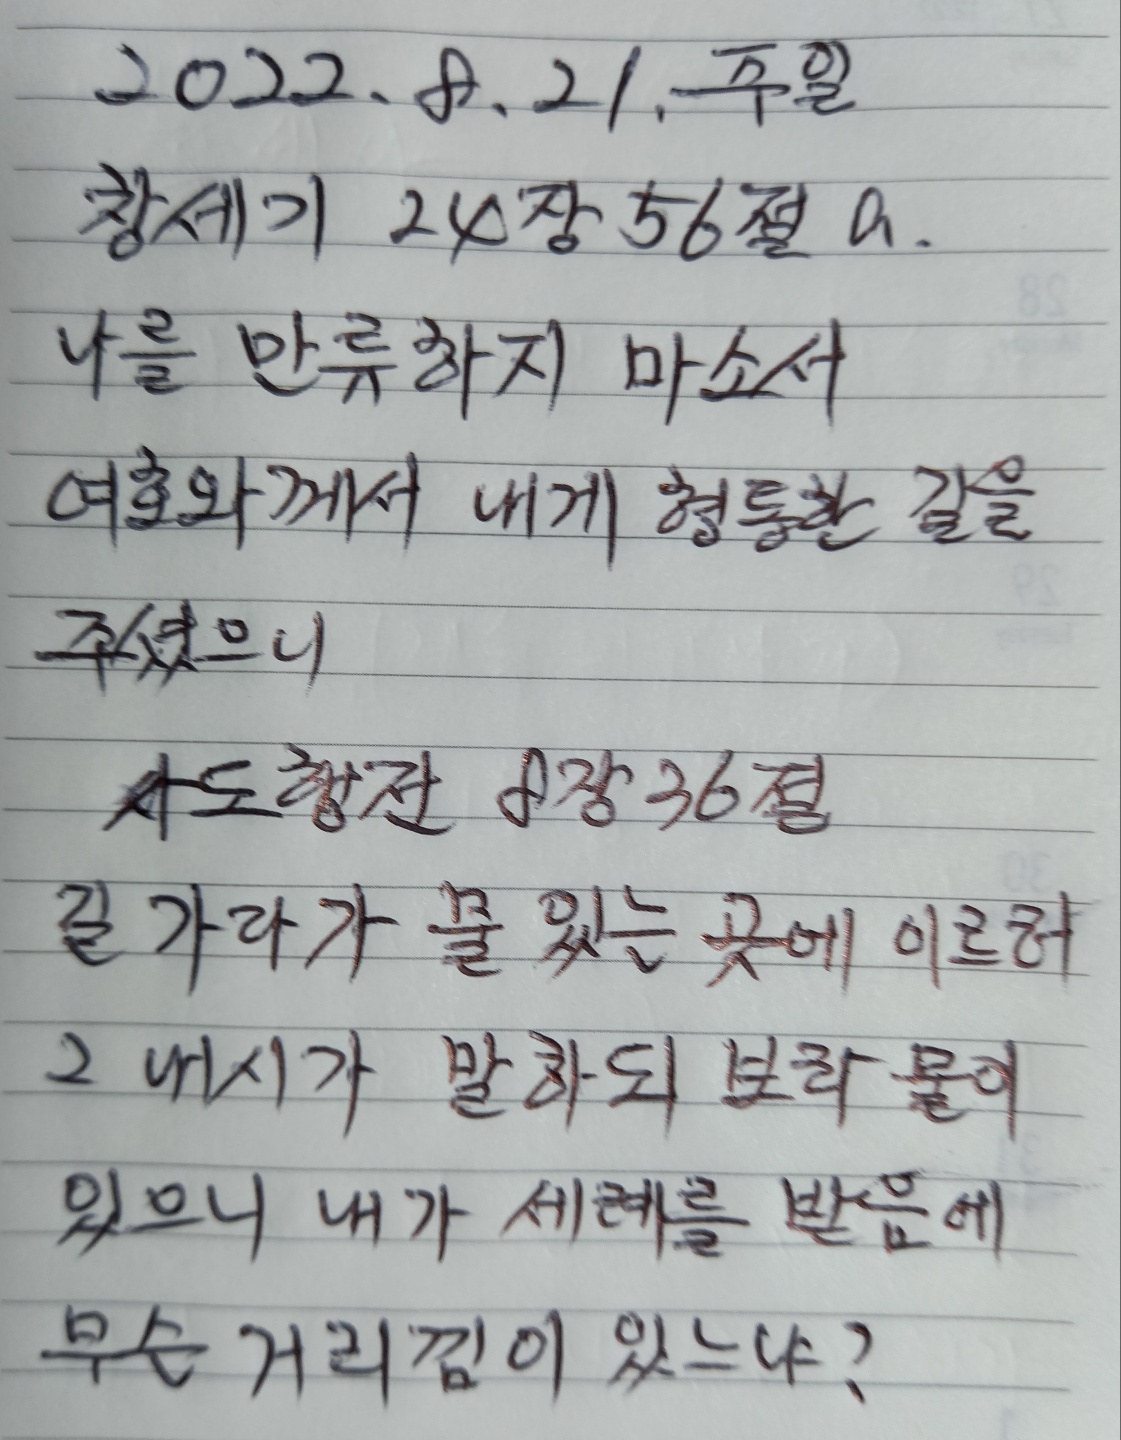 2022. 8. 21. 주일
창세기 24장 56절 a.
나를 만류하지 마소서
여호와께서 내게 형통한 길을
주셨으니
사도행전 8장 36절
길 가다가 물 있는 곳에 이르러
그 내시가 말하되 보라 물이
있으니 내가 세례를 받음에
무슨 거리낌이 있느냐?